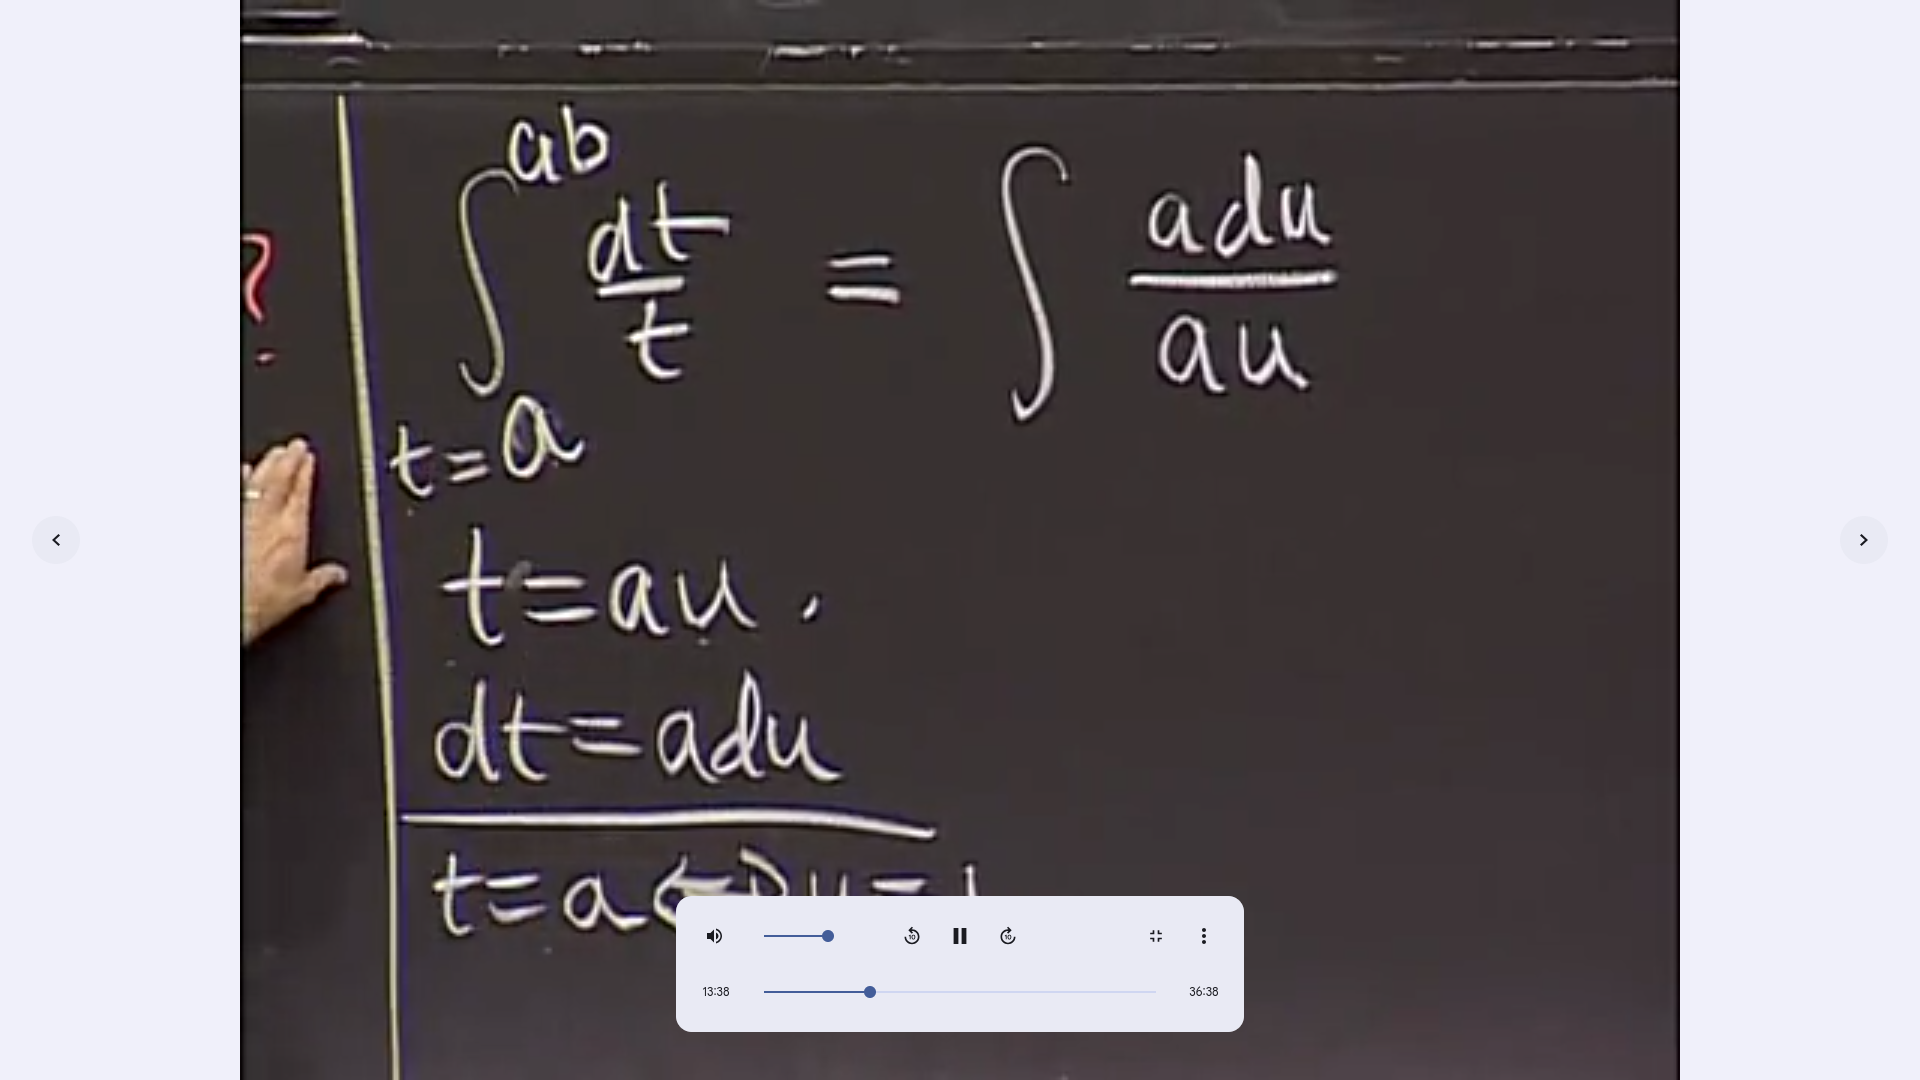 ?
∫_{t=a}^{ab} dt/t = ∫ adu/au
t=au.
dt=adu
t=a↔u=1
10
10
13:38
36:38